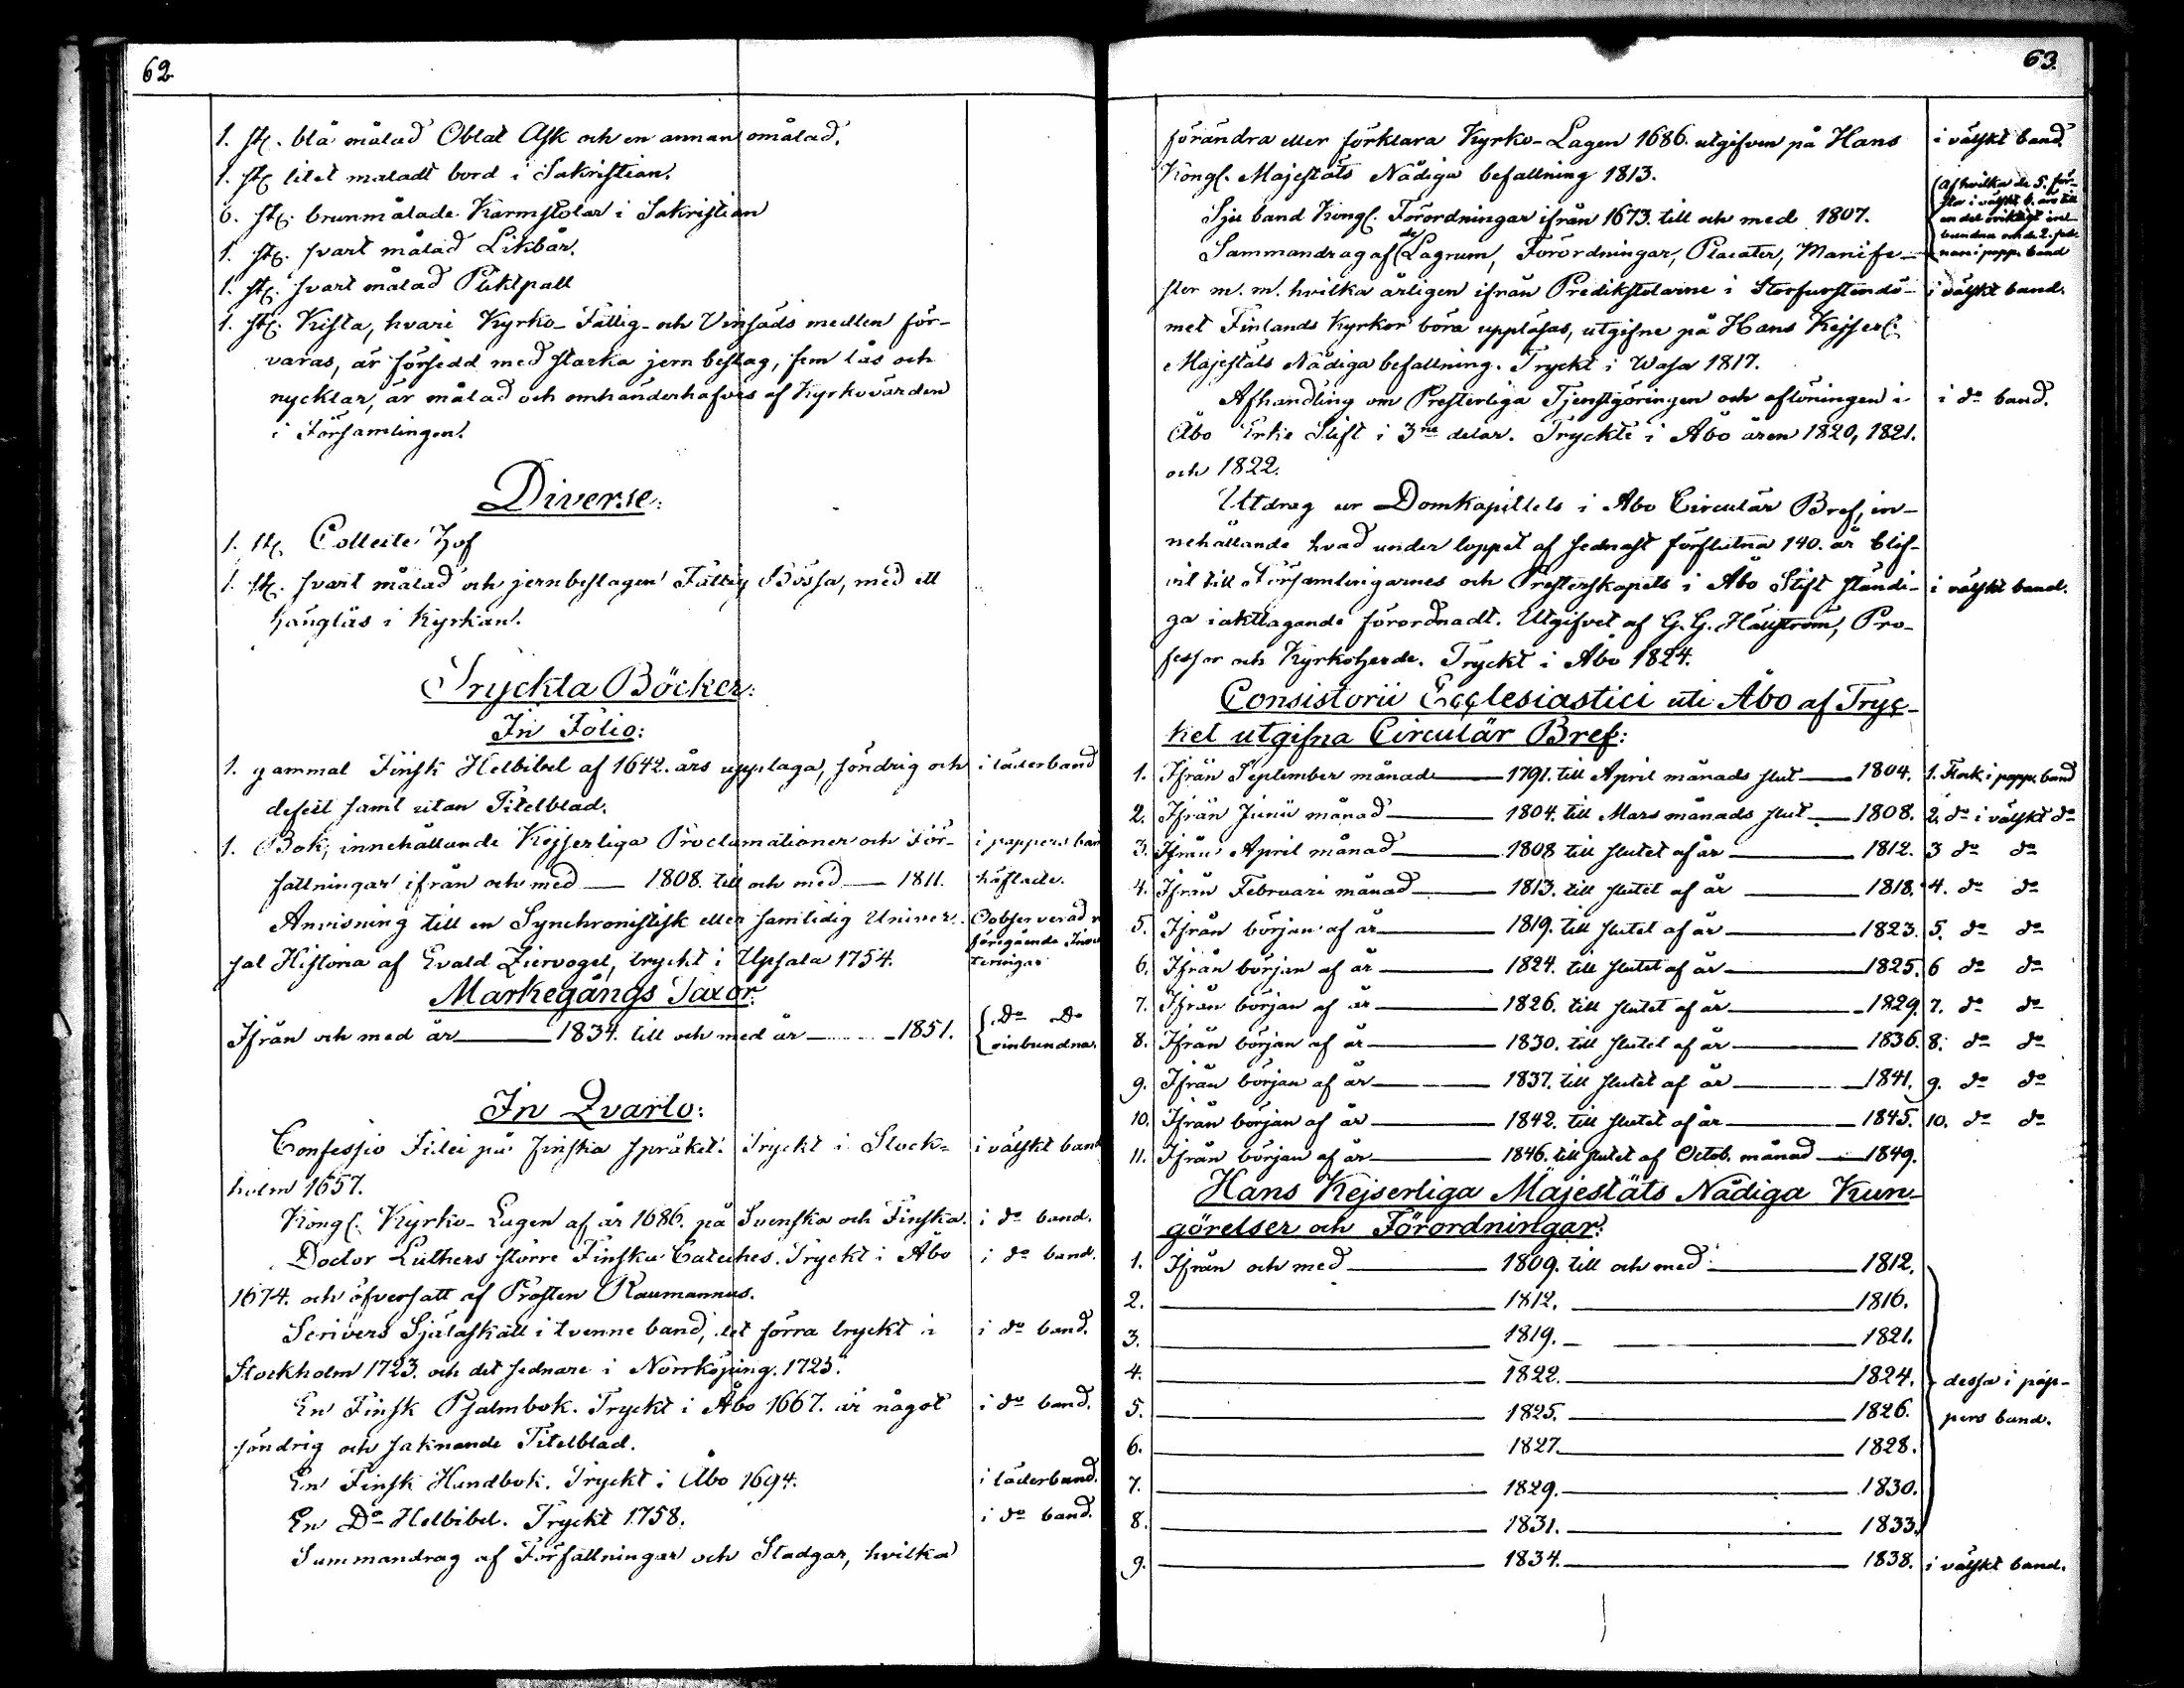 62
1. st. blå målad Oblat Ask och en annan omålad.
1. st. litet måladt bord i Sakristian.
6. st. brunmålade Karmstolar i Sakristian
1. st. svart målad Likbår.
1. st. svart målad Puktpall
1. st. Kista, hvari Kyrko- Fattig- och Vinsäds medlen för-
varas, är försedd med starka jern beslag, fem lås och
nycklar, är målad och omhänderhafves af Kyrkovärden
i Församlingen.
Diverse:
1. st. Collecte Hof
1. st. svart målad och jernbeslagen Fattig Bössa, med ett
hänglås i Kyrkan.
Tryckta Böcker:
In Folio:
1. gammal Finsk Helbibel af 1642. års upplaga, söndrig och i läderband
defect samt utan Titelblad.
1. Bok, innehållande Kejserliga Proclamationer och För- i pappers ban
fattningar ifrån och med — 1808. till och med — 1811. häftade.
Anvisning till en Synchronistisk eller samtidig Univer- Oobserverad
sal Historia af Evald Ziervogel, tryckt i Upsala 1754. föregående Inven
teringar
Markegångs Taxor:
Ifrån och med år — 1834. till och med år — 1851. Do Do
oinbundna.
In Qvarto:
Confessio Fidei på finska språket. Tryckt i Stock- i välskt band
holm 1657.
Kongl. Kyrko-Lagen af år 1686. på Svenska och Finska. i do band.
Doctor Luthers större Finska Cateches. Tryckt i Åbo i do band.
1674. och öfversatt af Prosten Raumannus.
Scrivers Själaskatt i tvenne band, det förra tryckt i i do band.
Stockholm 1723. och det sednare i Norrköping. 1725.
En Finsk Psalmbok. Tryckt i Åbo 1667. är något i do band.
söndrig och saknande Titelblad.
En Finsk Handbok. Tryckt i Åbo 1694. i läderband.
En Do Helbibel. Tryckt 1758. i do band.
Sammandrag af Författningar och Stadgar, hvilka
63.
förändra eller förklara Kyrko-Lagen 1686. utgifven på Hans i välskt band.
Kongl. Majestäts Nådiga befallning 1813.
Sju band Kongl. Förordningar ifrån 1673. till och med 1807. (af hvilka de 5. för-
sta i välskt b. äro till
en del oriktigt in-
bundna och de 2. sed-
nare i papp. band
Sammandrag af de Lagrum, Förordningar, Placater, Manife-
ster m. m. hvilka årligen ifrån Predikstolarne i Storfurstendö- i välskt band.
met Finlands Kyrkor böra uppläsas, utgifne på Hans Kejserl.
Majestäts Nådiga befallning. Tryckt i Wasa 1817.
Afhandling om Presterliga Tjenstgöringen och aflöningen i i do band.
Åbo Erke Stift i 3ne delar. Tryckte i Åbo åren 1820, 1821.
och 1822.
Utdrag ur Domkapitlets i Åbo Circulär Bref, in-
nehållande hvad under loppet af sednast förflutna 140. år blif-
vit till Församlingarnes och Presterskapets i Åbo Stift ständi- i välskt band.
ga iakttagande förordnadt. Utgifvet af G. G. Hällström, Pro-
fessor och Kyrkoherde. Tryckt i Åbo 1824.
Consistorii Ecclesiastici uti Åbo af Tryc-
ket utgifna Circulär Bref:
1. Ifrån September månad — 1791. till April månads slut — 1804. 1. Stock i papp. band
2. Ifrån Junii månad — 1804. till Mars månads slut — 1808. 2. do i välskt do
3. Ifrån April månad — 1808 till slutet af år — 1812. 3 do do
4. Ifrån Februari månad — 1813. till slutet af år — 1818. 4. do do
5. Ifrån början af år — 1819. till slutet af år — 1823. 5. do do
6. Ifrån början af år — 1824. till slutet af år — 1825. 6 do do
7. Ifrån början af år — 1826. till slutet af år — 1829. 7. do do
8. Ifrån början af år — 1830. till slutet af år — 1836. 8. do do
9. Ifrån början af år — 1837. till slutet af år — 1841. 9. do do
10. Ifrån början af år — 1842. till slutet af år — 1845. 10. do do
11. Ifrån början af år — 1846. till slutet af Octob. månad — 1849.
Hans Kejserliga Majestäts Nådiga Kun-
görelser och Förordningar:
1. Ifrån och med — 1809. till och med — 1812.
2. — 1812. — 1816.
3. — 1819. — 1821.
4. — 1822. — 1824. dessa i pap-
5. — 1825. — 1826. pers band.
6. — 1827. — 1828.
7. — 1829. — 1830.
8. — 1831. — 1833.
9. — 1834. — 1838. i välskt band.